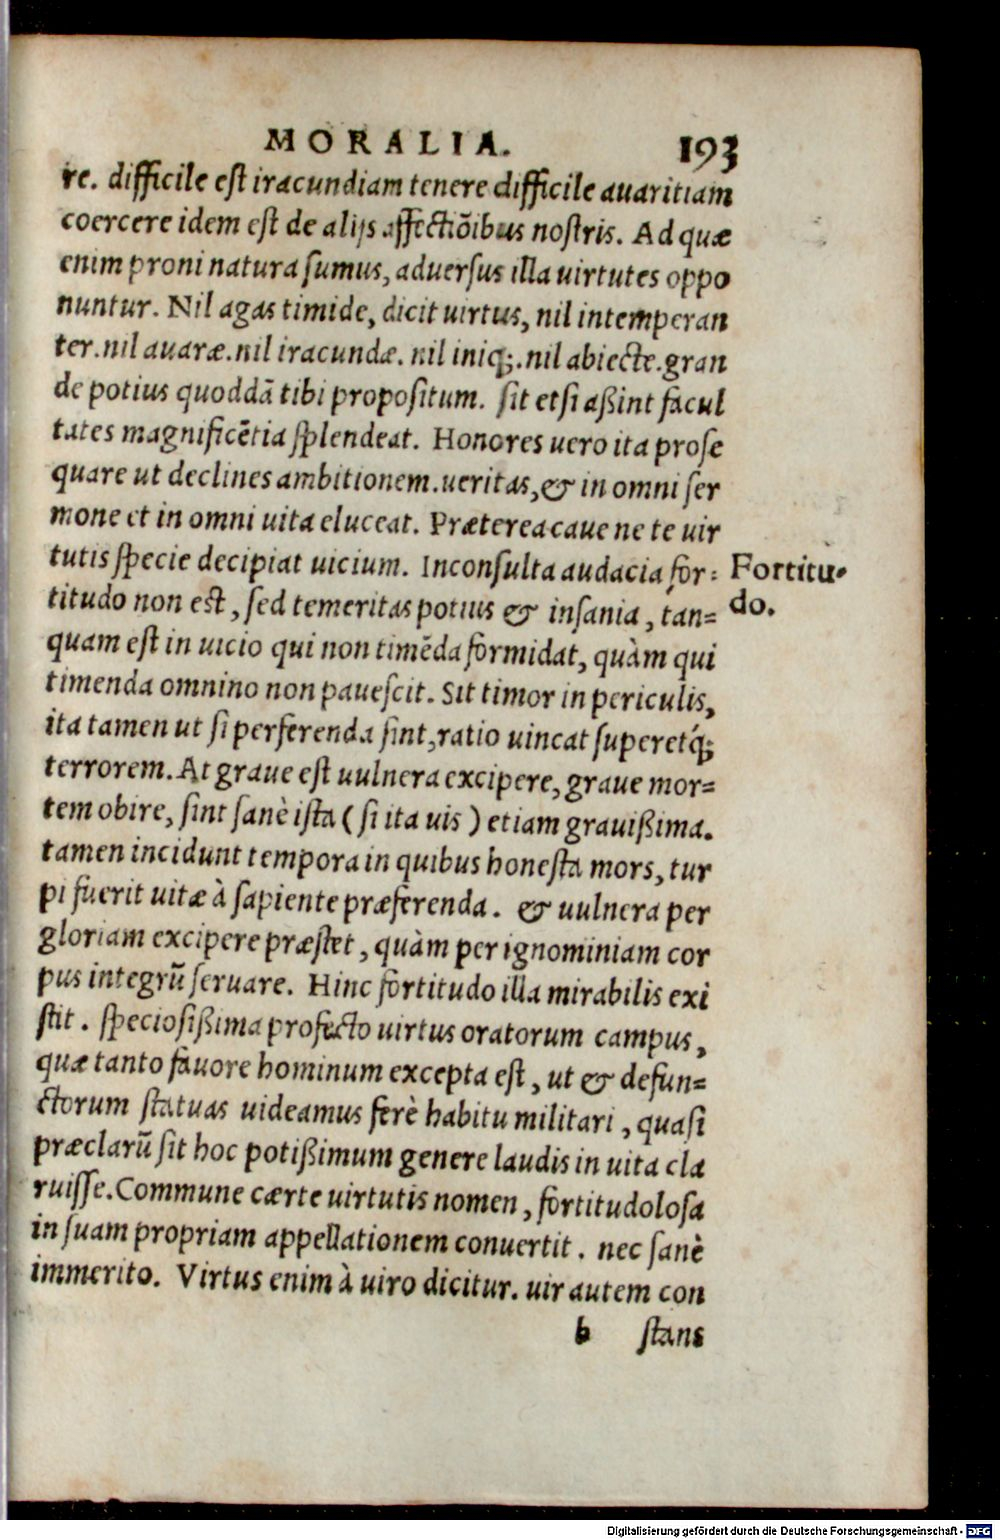 MORALIA. 193
re. difficile est iracundiam tenere difficile auaritiam
coercere idem est de alijs affectiõibus nostris. Ad quæ
enim proni natura sumus, aduersus illa uirtutes oppo
nuntur. Nil agas timide, dicit uirtus, nil intemperan
ter. nil auaræ. nil iracundæ. nil iniq;. nil abiecte. gran
de potius quoddã tibi propositum. sit etsi aßint facul
tates magnificẽtia splendeat. Honores uero ita prose
quare ut declines ambitionem. ueritas, & in omni ser
mone et in omni uita eluceat. Præterea caue ne te uir
tutis specie decipiat uicium. Inconsulta audacia for=
titudo non est, sed temeritas potius & insania, tan=
quam est in uicio qui non timẽda formidat, quàm qui
timenda omnino non pauescit. Sit timor in periculis,
ita tamen ut si perferenda sint, ratio uincat superetq́;
terrorem. At graue est uulnera excipere, graue mor=
tem obire, sint sanè ista ( si ita uis ) etiam grauißima.
tamen incidunt tempora in quibus honesta mors, tur
pi fuerit uitæ à sapiente præferenda. & uulnera per
gloriam excipere præstet, quàm per ignominiam cor
pus integrũ seruare. Hinc fortitudo illa mirabilis exi
stit. speciosißima profecto uirtus oratorum campus,
quæ tanto fauore hominum excepta est, ut & defun=
ctorum statuas uideamus ferè habitu militari, quasi
præclarũ sit hoc potißimum genere laudis in uita cla
ruisse. Commune cærte uirtutis nomen, fortitudo losa
in suam propriam appellationem conuertit. nec sanè
immerito. Virtus enim à uiro dicitur. uir autem con
b stans
Fortitu
do.
Digitalisierung gefördert durch die Deutsche Forschungsgemeinschaft - DFG